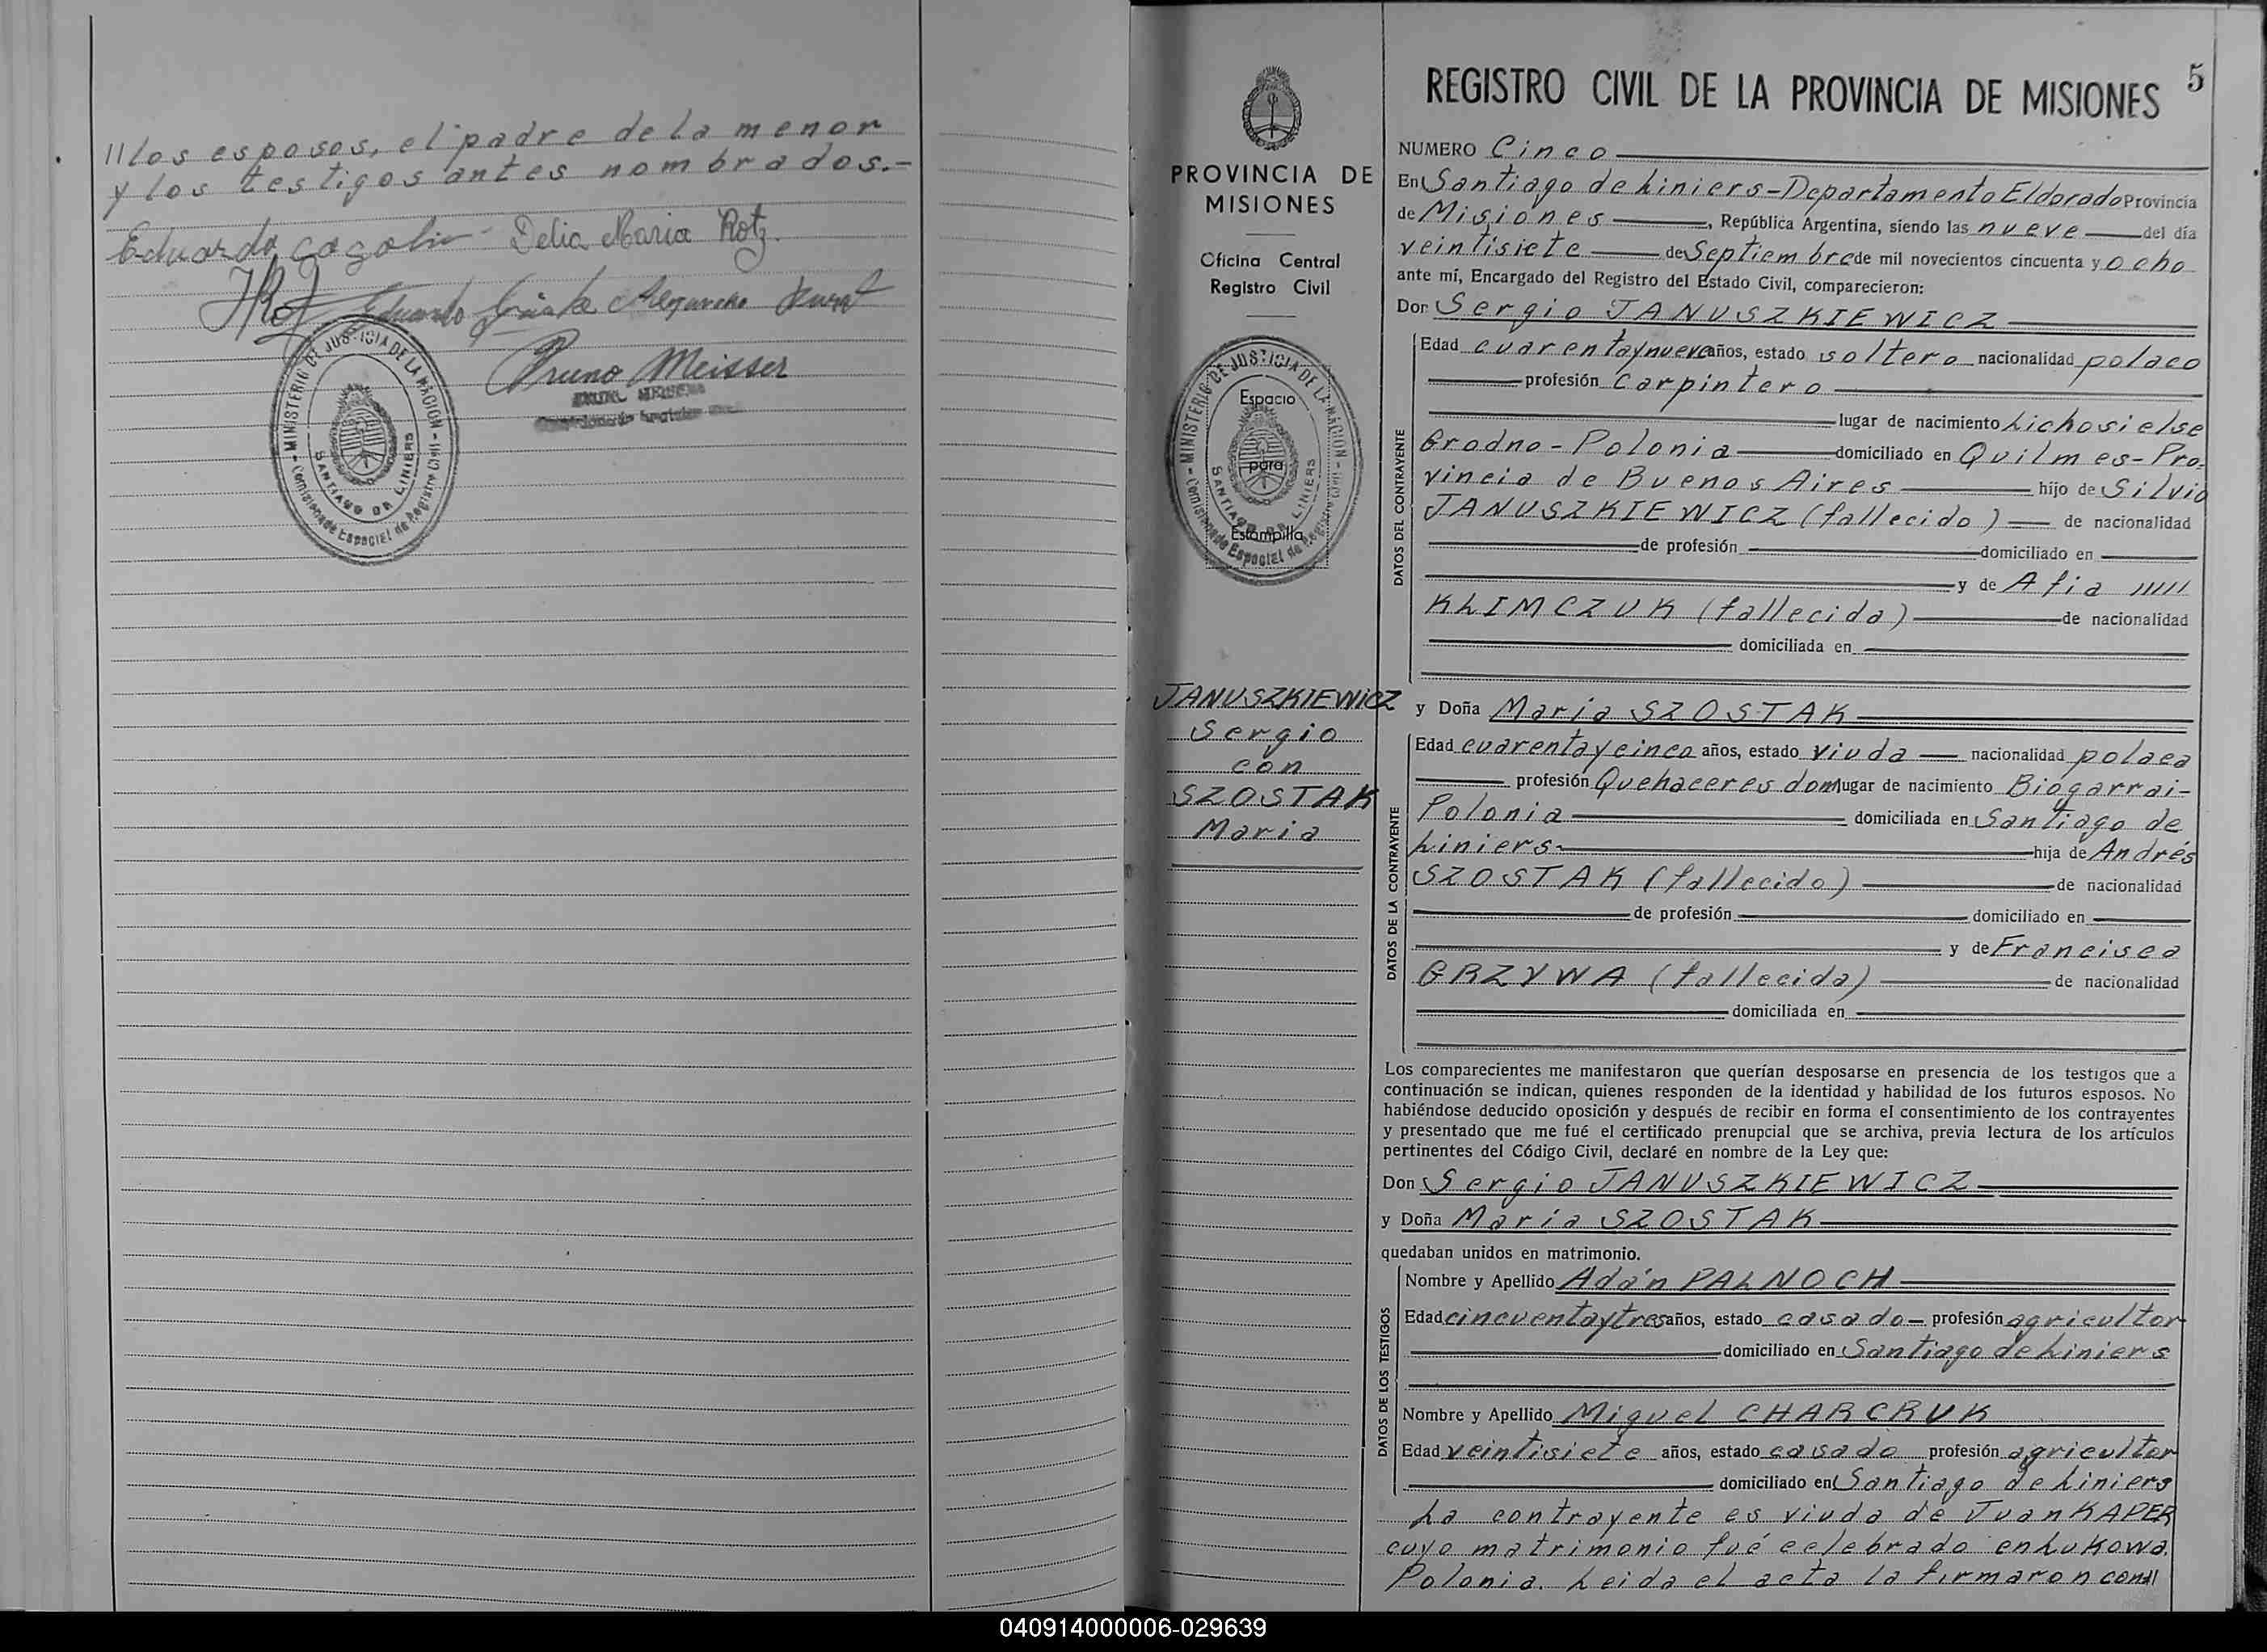 //los esposos, el padre de la menor
y los testigos antes nombrados.-
Eduardo Delia Maria Rotz.
Eduardo
Bruno Meisser
MINISTERIO DE JUSTICIA DE LA NACION
SANTIAGO DE LINIERS
Comisionado Especial de Registro Civil
PROVINCIA DE
MISIONES
Oficina Central
Registro Civil
MINISTERIO DE JUSTICIA DE LA NACION
SANTIAGO DE LINIERS
Comisionado Especial de Registro Civil
Espacio
para
Estampilla
JANUSZKIEWICZ
Sergio
con
SZOSTAK
Maria
5
REGISTRO CIVIL DE LA PROVINCIA DE MISIONES
NUMERO Cinco
En Santiago de Liniers-Departamento Eldorado Provincia
de Misiones, República Argentina, siendo las nueve del día
veintisiete de Septiembre de mil novecientos cincuenta y ocho
ante mí, Encargado del Registro del Estado Civil, comparecieron:
Don Sergio JANUSZKIEWICZ
DATOS DEL CONTRAYENTE
Edad cuarentaynueve años, estado soltero nacionalidad polaco
profesión Carpintero
lugar de nacimiento Lichosielse
Grodno-Polonia domiciliado en Quilmes-Pro-
vincia de Buenos Aires hijo de Silvio
JANUSZKIEWICZ (fallecido) de nacionalidad
de profesión domiciliado en
y de Afia /////
KLIMCZUK (fallecida) de nacionalidad
domiciliada en
y Doña Maria SZOSTAK
DATOS DE LA CONTRAYENTE
Edad cuarentaycinco años, estado viuda nacionalidad polaca
profesión Quehaceres dom lugar de nacimiento Biogarrai-
Polonia domiciliada en Santiago de
Liniers- hija de Andrés
SZOSTAK (fallecido) de nacionalidad
de profesión domiciliado en
y de Francisca
GRZYWA (fallecida) de nacionalidad
domiciliada en
Los comparecientes me manifestaron que querían desposarse en presencia de los testigos que a
continuación se indican, quienes responden de la identidad y habilidad de los futuros esposos. No
habiéndose deducido oposición y después de recibir en forma el consentimiento de los contrayentes
y presentado que me fué el certificado prenupcial que se archiva, previa lectura de los artículos
pertinentes del Código Civil, declaré en nombre de la Ley que:
Don Sergio JANUSZKIEWICZ
y Doña Maria SZOSTAK
quedaban unidos en matrimonio.
DATOS DE LOS TESTIGOS
Nombre y Apellido Adán PALNOCH
Edad cincuentaytres años, estado casado profesión agricultor
domiciliado en Santiago de Liniers
Nombre y Apellido Miguel CHARCRUK
Edad veintisiete años, estado casado profesión agricultor
domiciliado en Santiago de Liniers
La contrayente es viuda de Juan KAPER
cuyo matrimonio fué celebrado en Lukowa.
Polonia. Leida el acta la firmaron con//
040914000006-029639